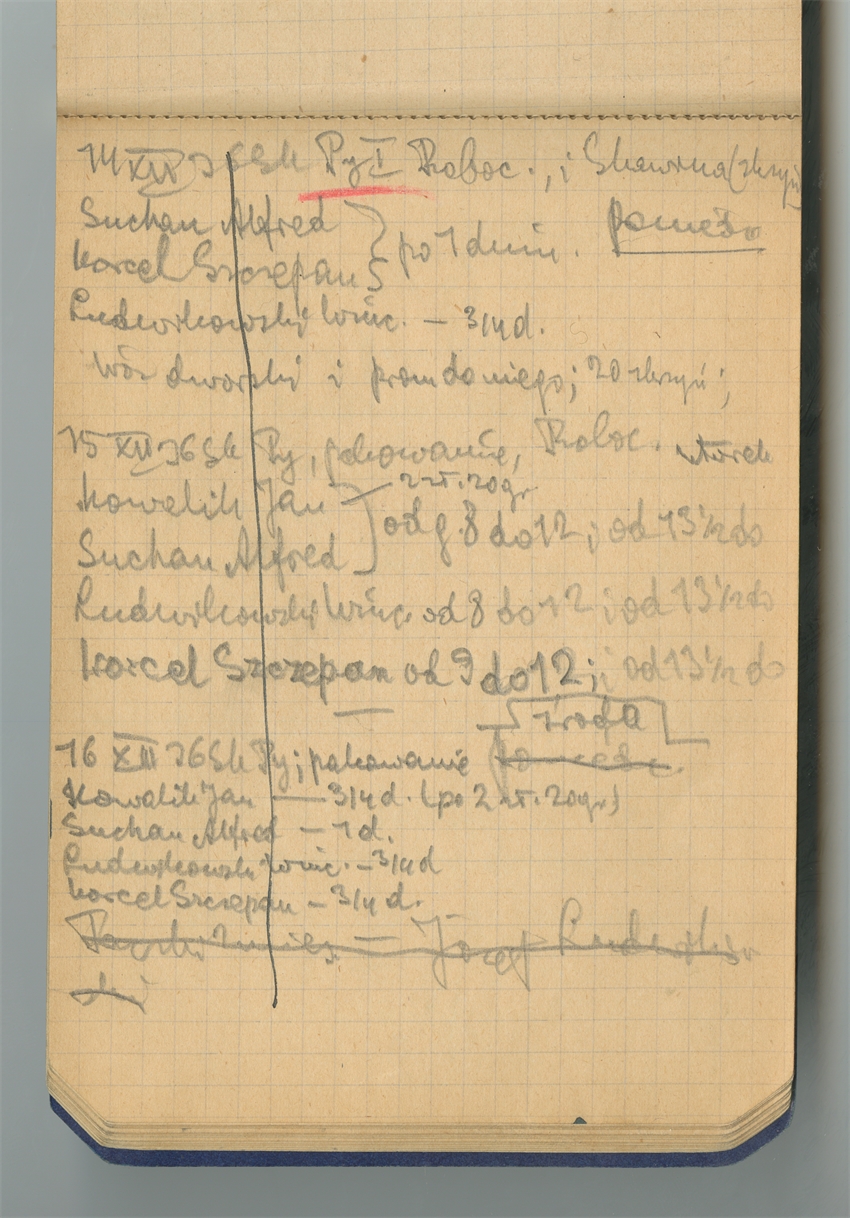 14 XII 36 Sk Py I Roboc., i Skawina (skrzyń
Suchan Alfred } po 1 dniu. poniedz.
Korcel Szczepan
Ludwikowski Winc. – 3/4 d.
Wóz dworski i prom do niego; 20 skrzyń;
15 XII 36 Sk Py, pakowanie, Roboc. wtorek
Kowalik Jan – 2 zł. 20 gr.
Suchan Alfred } od g. 8 do 12; od 13 1/2 do
Ludwikowski Winc. od 8 do 12; od 13 1/2 do
Korcel Szczepan od 9 do 12; i od 13 1/2 do
środa
16 XII 36 Sk Py; pakowanie
Kowalik Jan — 3/4 d. (po 2 zł. 20 gr.)
Suchan Alfred – 1 d.
Ludwikowski Winc. – 3/4 d
Korcel Szczepan – 3/4 d.
— Józef Ludwikow
ski